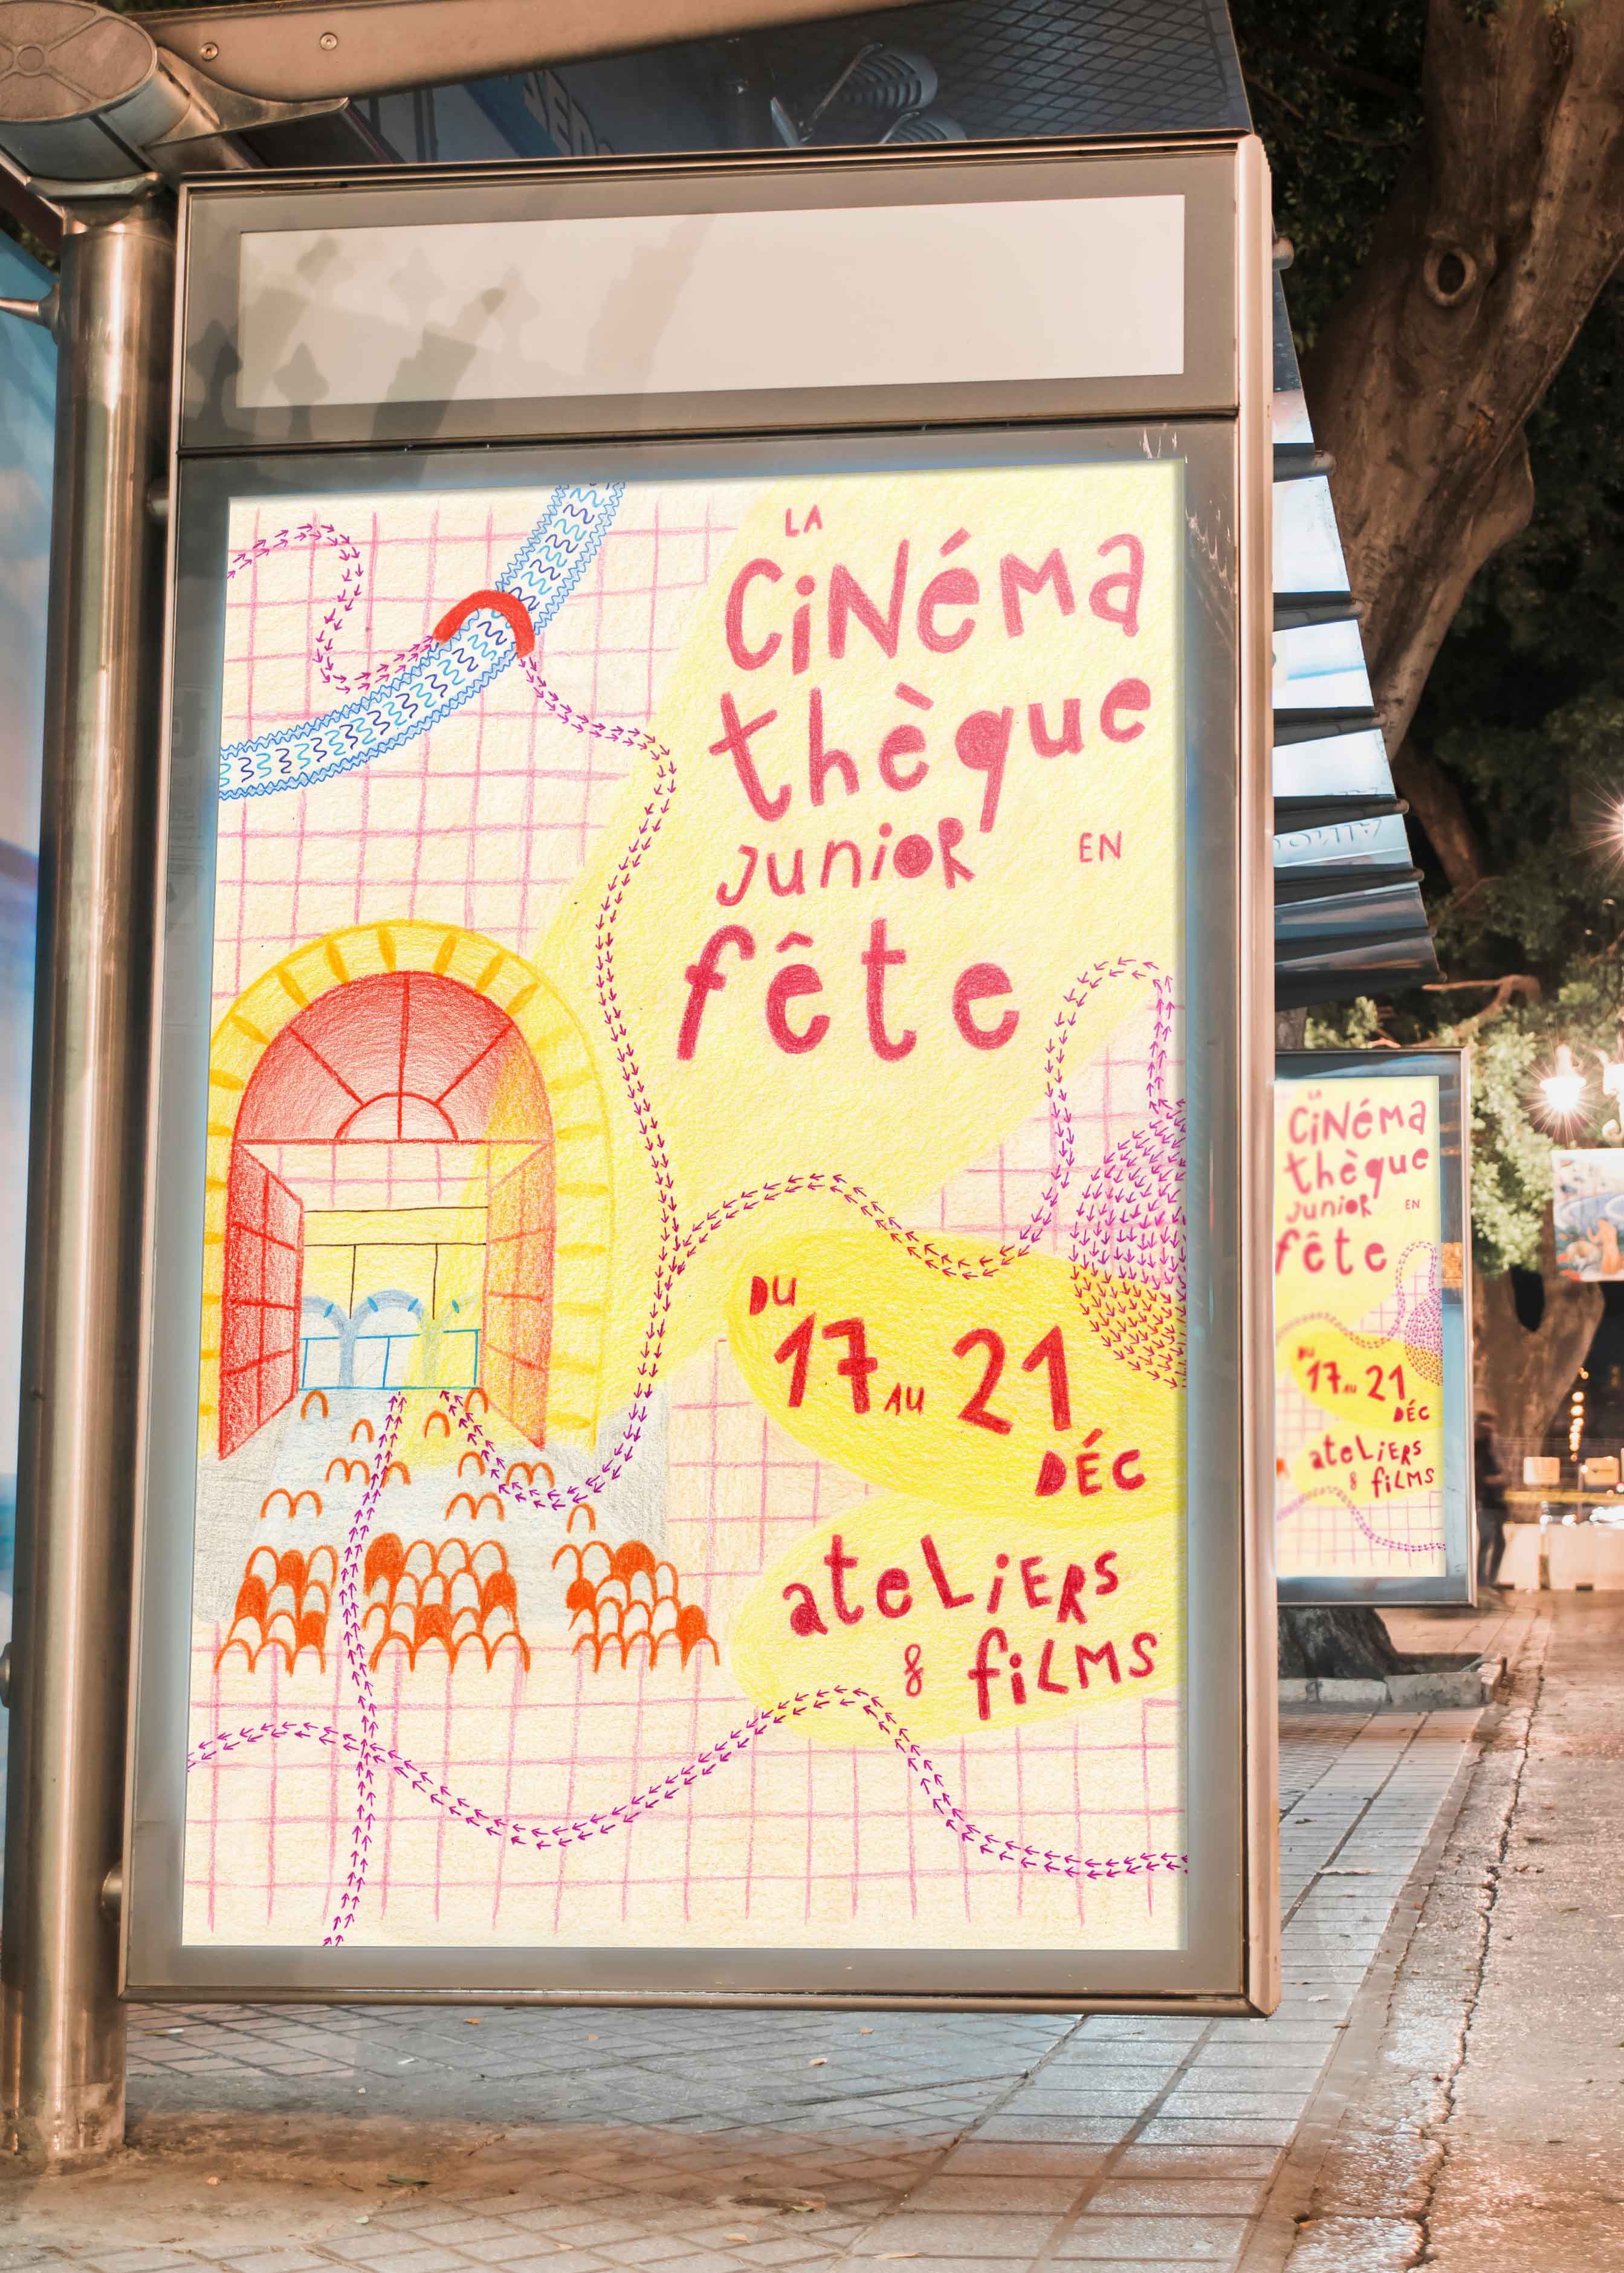 LA
CiNéMa
thèque
JuniOR EN
fête
DU
17 AU 21
DÉC
ateLiERS
& fiLMS
LA
CiNéMa
thèque
JuniOR EN
fête
DU
17 AU 21
DÉC
ateLiERS
& fiLMS